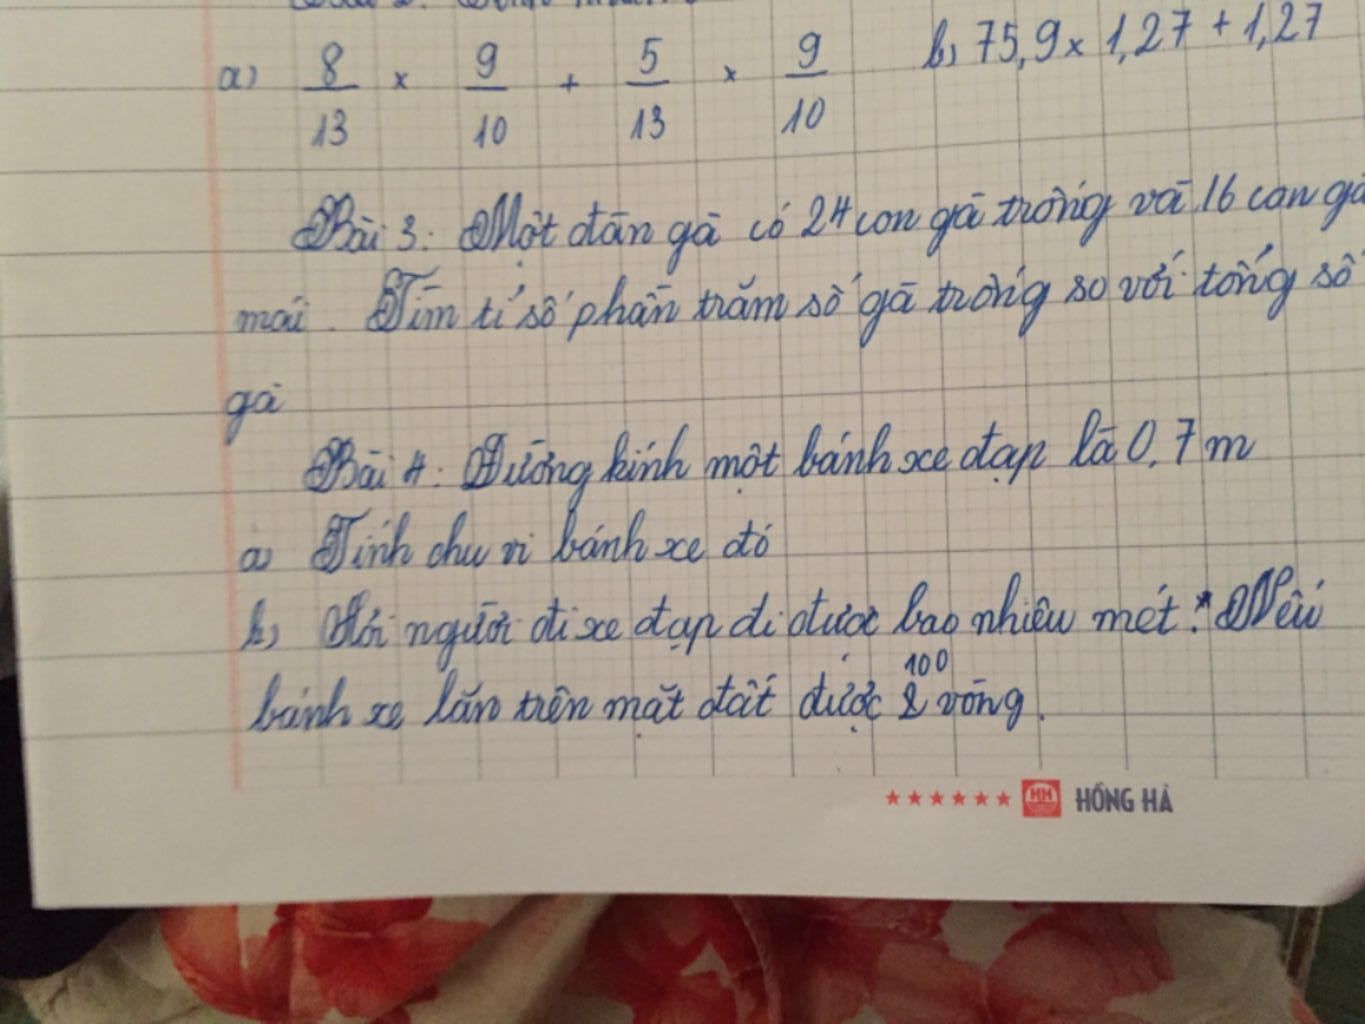 a) 8/13 × 9/10 + 5/13 × 9/10 b) 75,9 × 1,27 + 1,27
Bài 3: Một đàn gà có 24 con gà trống và 16 con gà
mái. Tìm tỉ số phần trăm số gà trống so với tổng số
gà
Bài 4: Đường kính một bánh xe đạp là 0,7 m
a) Tính chu vi bánh xe đó
b) Hỏi người đi xe đạp đi được bao nhiêu mét? Nếu
100
bánh xe lăn trên mặt đất được vòng.
★★★★★★ HH HỒNG HÀ